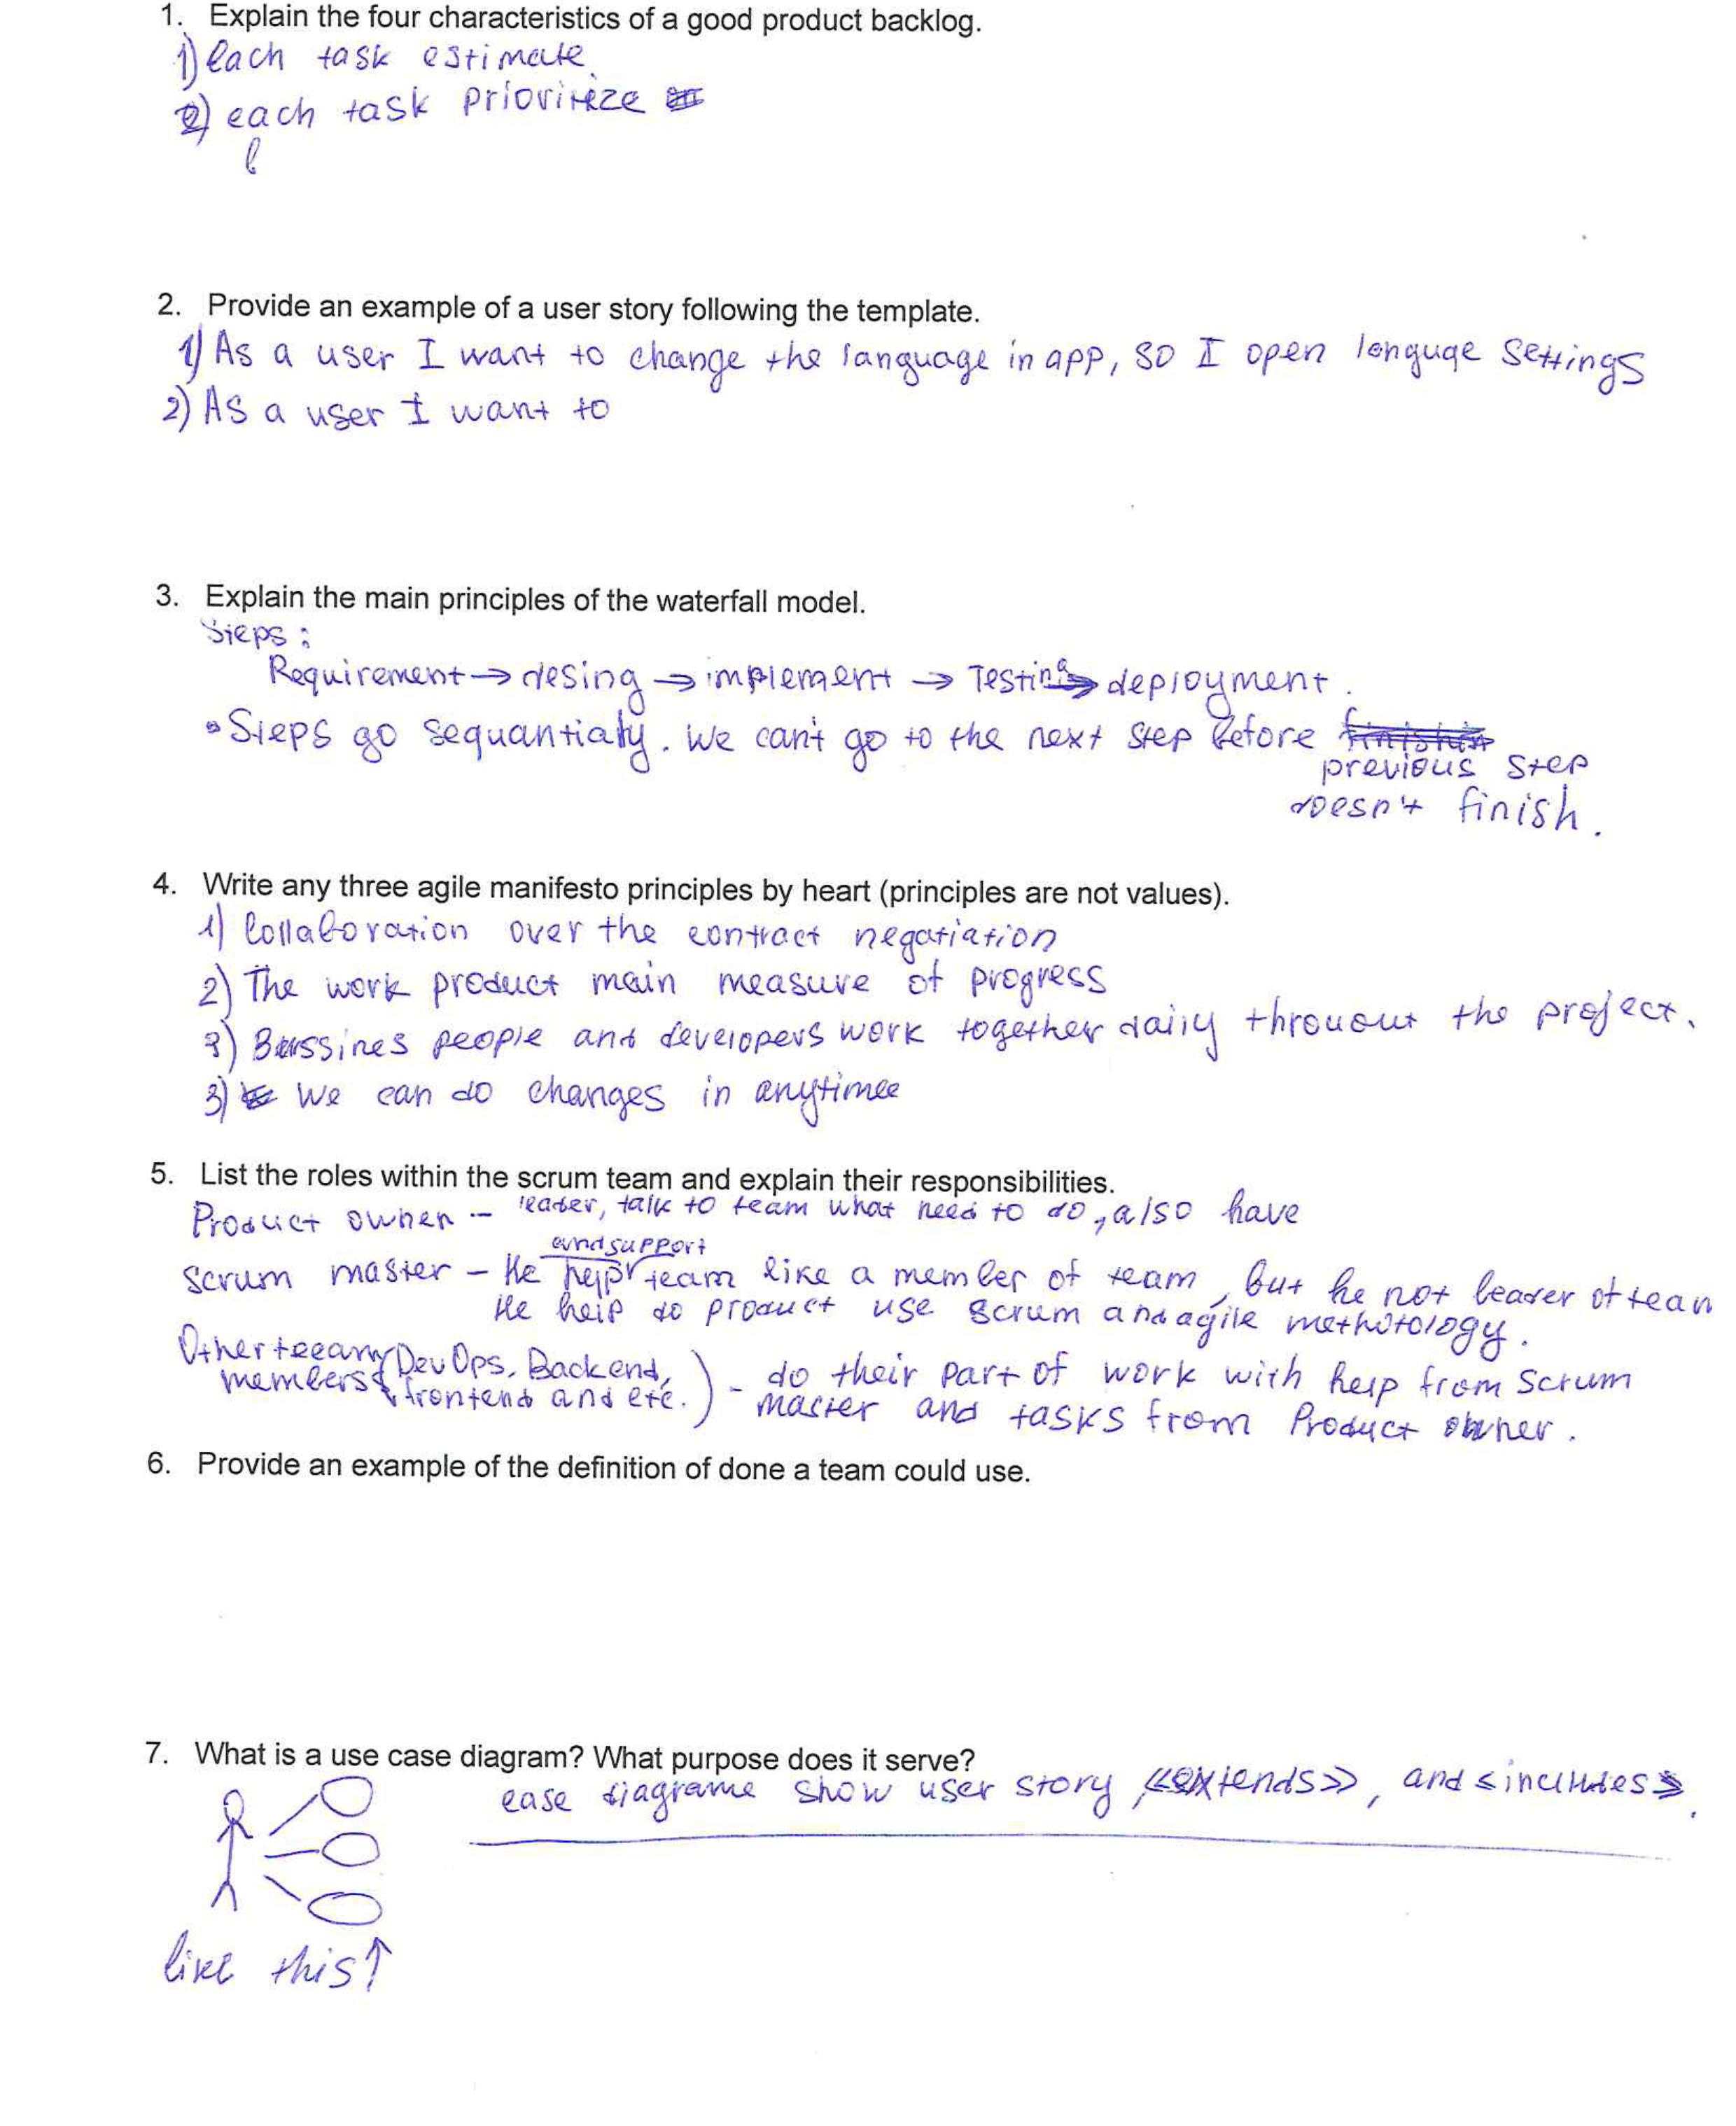 1. Explain the four characteristics of a good product backlog.
1) each task estimate
2) each task prioriteze
2. Provide an example of a user story following the template.
1) As a user I want to change the language in app, so I open longuge settings
2) As a user I want to
3. Explain the main principles of the waterfall model.
Steps:
Requirement → desing → implement → Testing → deployment.
• Steps go sequantialy. We can't go to the next step before
previous step
doesn't finish.
4. Write any three agile manifesto principles by heart (principles are not values).
1) Collaboration over the contract negatiation
2) The work product main measure of progress
3) Bussines people and developers work together daily throuout the project.
3) We can do changes in anytimee
5. List the roles within the scrum team and explain their responsibilities.
Product owner - leader, talk to team what need to do, also have
and support
Scrum master - He help team like a member of team, but he not leader of team
He help do product use scrum and agile methotology.
Other teeam (DevOps, Backend, ) - do their part of work with help from Scrum
members frontend and etc. master and tasks from Product owner.
6. Provide an example of the definition of done a team could use.
7. What is a use case diagram? What purpose does it serve?
case diagrame show user story, <<extends>>, and <includes>.
like this↑